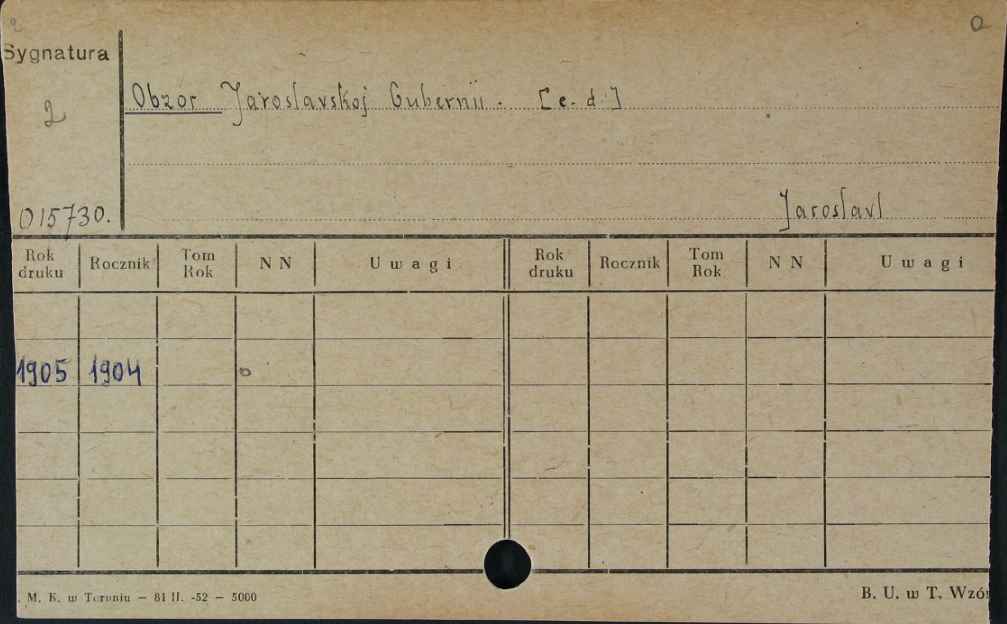 Sygnatura
2
Obzor Jaroslavskoj Gubernii. [e. d.]
Jaroslavl
015730.
Rok druku Rocznik Tom Rok N N Uwagi Rok druku Rocznik Tom Rok N N Uwagi
1905 1904 o
. M. K. w Toruniu — 81 II. -52 — 5000
B. U. w T. Wzór